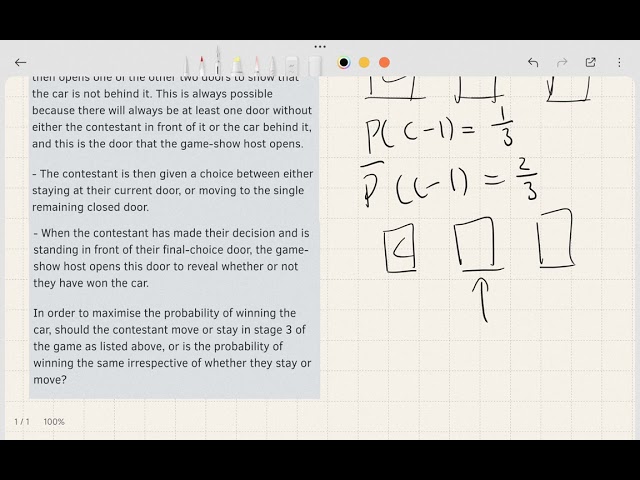 then opens one of the other two doors to show that
the car is not behind it. This is always possible
because there will always be at least one door without
either the contestant in front of it or the car behind it,
and this is the door that the game-show host opens.
- The contestant is then given a choice between either
staying at their current door, or moving to the single
remaining closed door.
- When the contestant has made their decision and is
standing in front of their final-choice door, the game-
show host opens this door to reveal whether or not
they have won the car.
In order to maximise the probability of winning the
car, should the contestant move or stay in stage 3 of
the game as listed above, or is the probability of
winning the same irrespective of whether they stay or
move?
1 / 1 100%
P(C-1) = 1/3
P̅(C-1) = 2/3
C